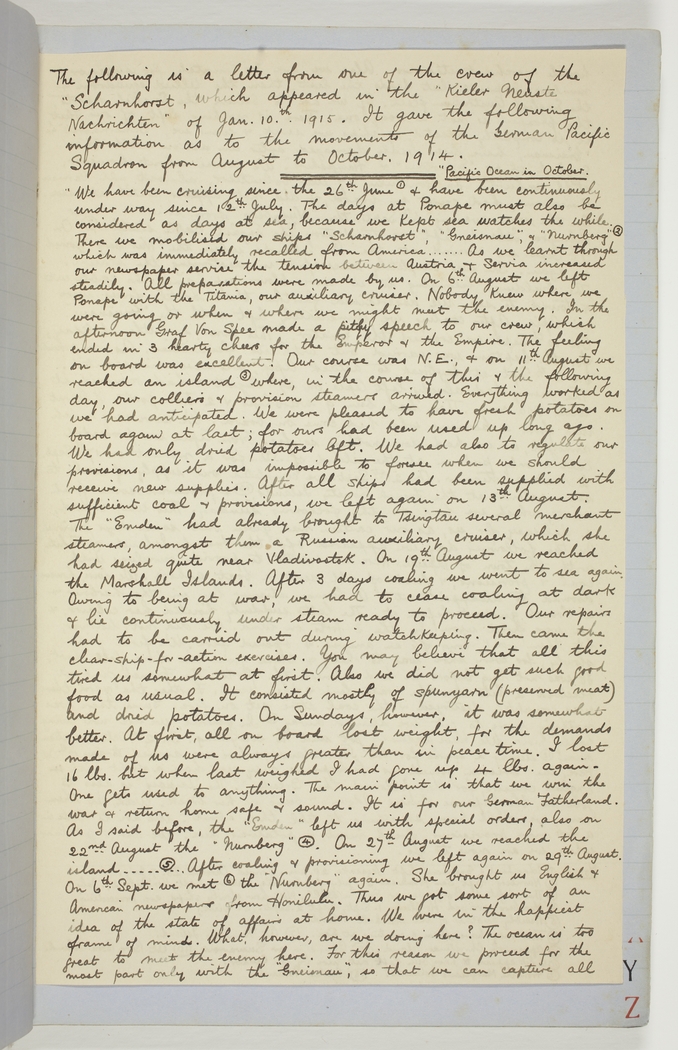 The following is a letter from one of the crew of the
"Scharnhorst, which appeared in the "Kieler Neuste
Nachrichten" of Jan. 10.th 1915. It gave the following
information as to the movements of the German Pacific
Squadron from August to October. 1914.
"Pacific Ocean in October.
"We have been cruising since the 26th June ① & have been continuously
under way since 12th July. The days at Ponape must also be
considered as days at sea, because we kept sea watches the while.
There we mobilised our ships "Scharnhorst", "Gneisnau" & "Nurnberg" ②
which was immediately recalled from America....... As we learnt through
our newspaper service the tension between Austria & Servia increased
steadily. All preparations were made by us. On 6th August we left
Ponape with the Titania, our auxiliary cruiser. Nobody knew where we
were going or when & where we might meet the enemy. In the
afternoon Graf Von Spee made a pithy speech to our crew, which
ended in 3 hearty cheers for the Emperor & the Empire. The feeling
on board was excellent. Our course was N.E., & on 11th August we
reached an island ③ where, in the course of this & the following
day, our colliers & provision steamers arrived. Everything worked as
we had anticipated. We were pleased to have fresh potatoes on
board again at last; for ours had been used up long ago.
We had only dried potatoes left. We had also to regulate our
provisions, as it was impossible to foresee when we should
receive new supplies. After all ships had been supplied with
sufficient coal & provisions, we left again on 13th August.
The "Emden" had already brought to Tsingtau several merchant
steamers, amongst them a Russian auxiliary cruiser, which she
had seized quite near Vladivostok. On 19th August we reached
the Marshall Islands. After 3 days coaling we went to sea again.
Owing to being at war, we had to cease coaling at dark
& lie continuously under steam ready to proceed. Our repairs
had to be carried out during watchkeeping. Then came the
clear-ship-for-action exercises. You may believe that all this
tired us somewhat at first. Also we did not get such good
food as usual. It consisted mostly of spunyarn (preserved meat)
and dried potatoes. On Sundays, however, it was somewhat
better. At first, all on board lost weight, for the demands
made of us were always greater than in peace time. I lost
16 lbs. but when last weighed I had gone up 4 lbs. again.
One gets used to anything. The main point is that we win the
war & return home safe & sound. It is for our German Fatherland.
As I said before, the "Emden" left us with special orders, also on
22nd August the "Nurnberg" ④. On 27th August we reached the
island ..... ⑤... After coaling & provisioning we left again on 29th August.
On 6th Sept. we met ⑥ the "Nurnberg" again. She brought us English &
American newspapers from Honilulu. Thus we got some sort of an
idea of the state of affairs at home. We were in the happiest
frame of mind. What, however, are we doing here? The ocean is too
great to meet the enemy here. For this reason we proceed for the
most part only with the "Gneisnau", so that we can capture all
Y
Z